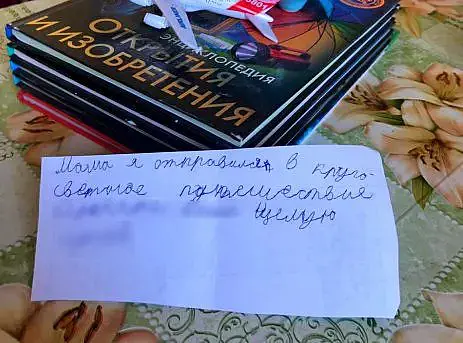 ЭНЦИКЛОПЕДИЯ
ОТКРЫТИЯ
И ИЗОБРЕТЕНИЯ
Мама я отправился в круго-
светное
Щелую